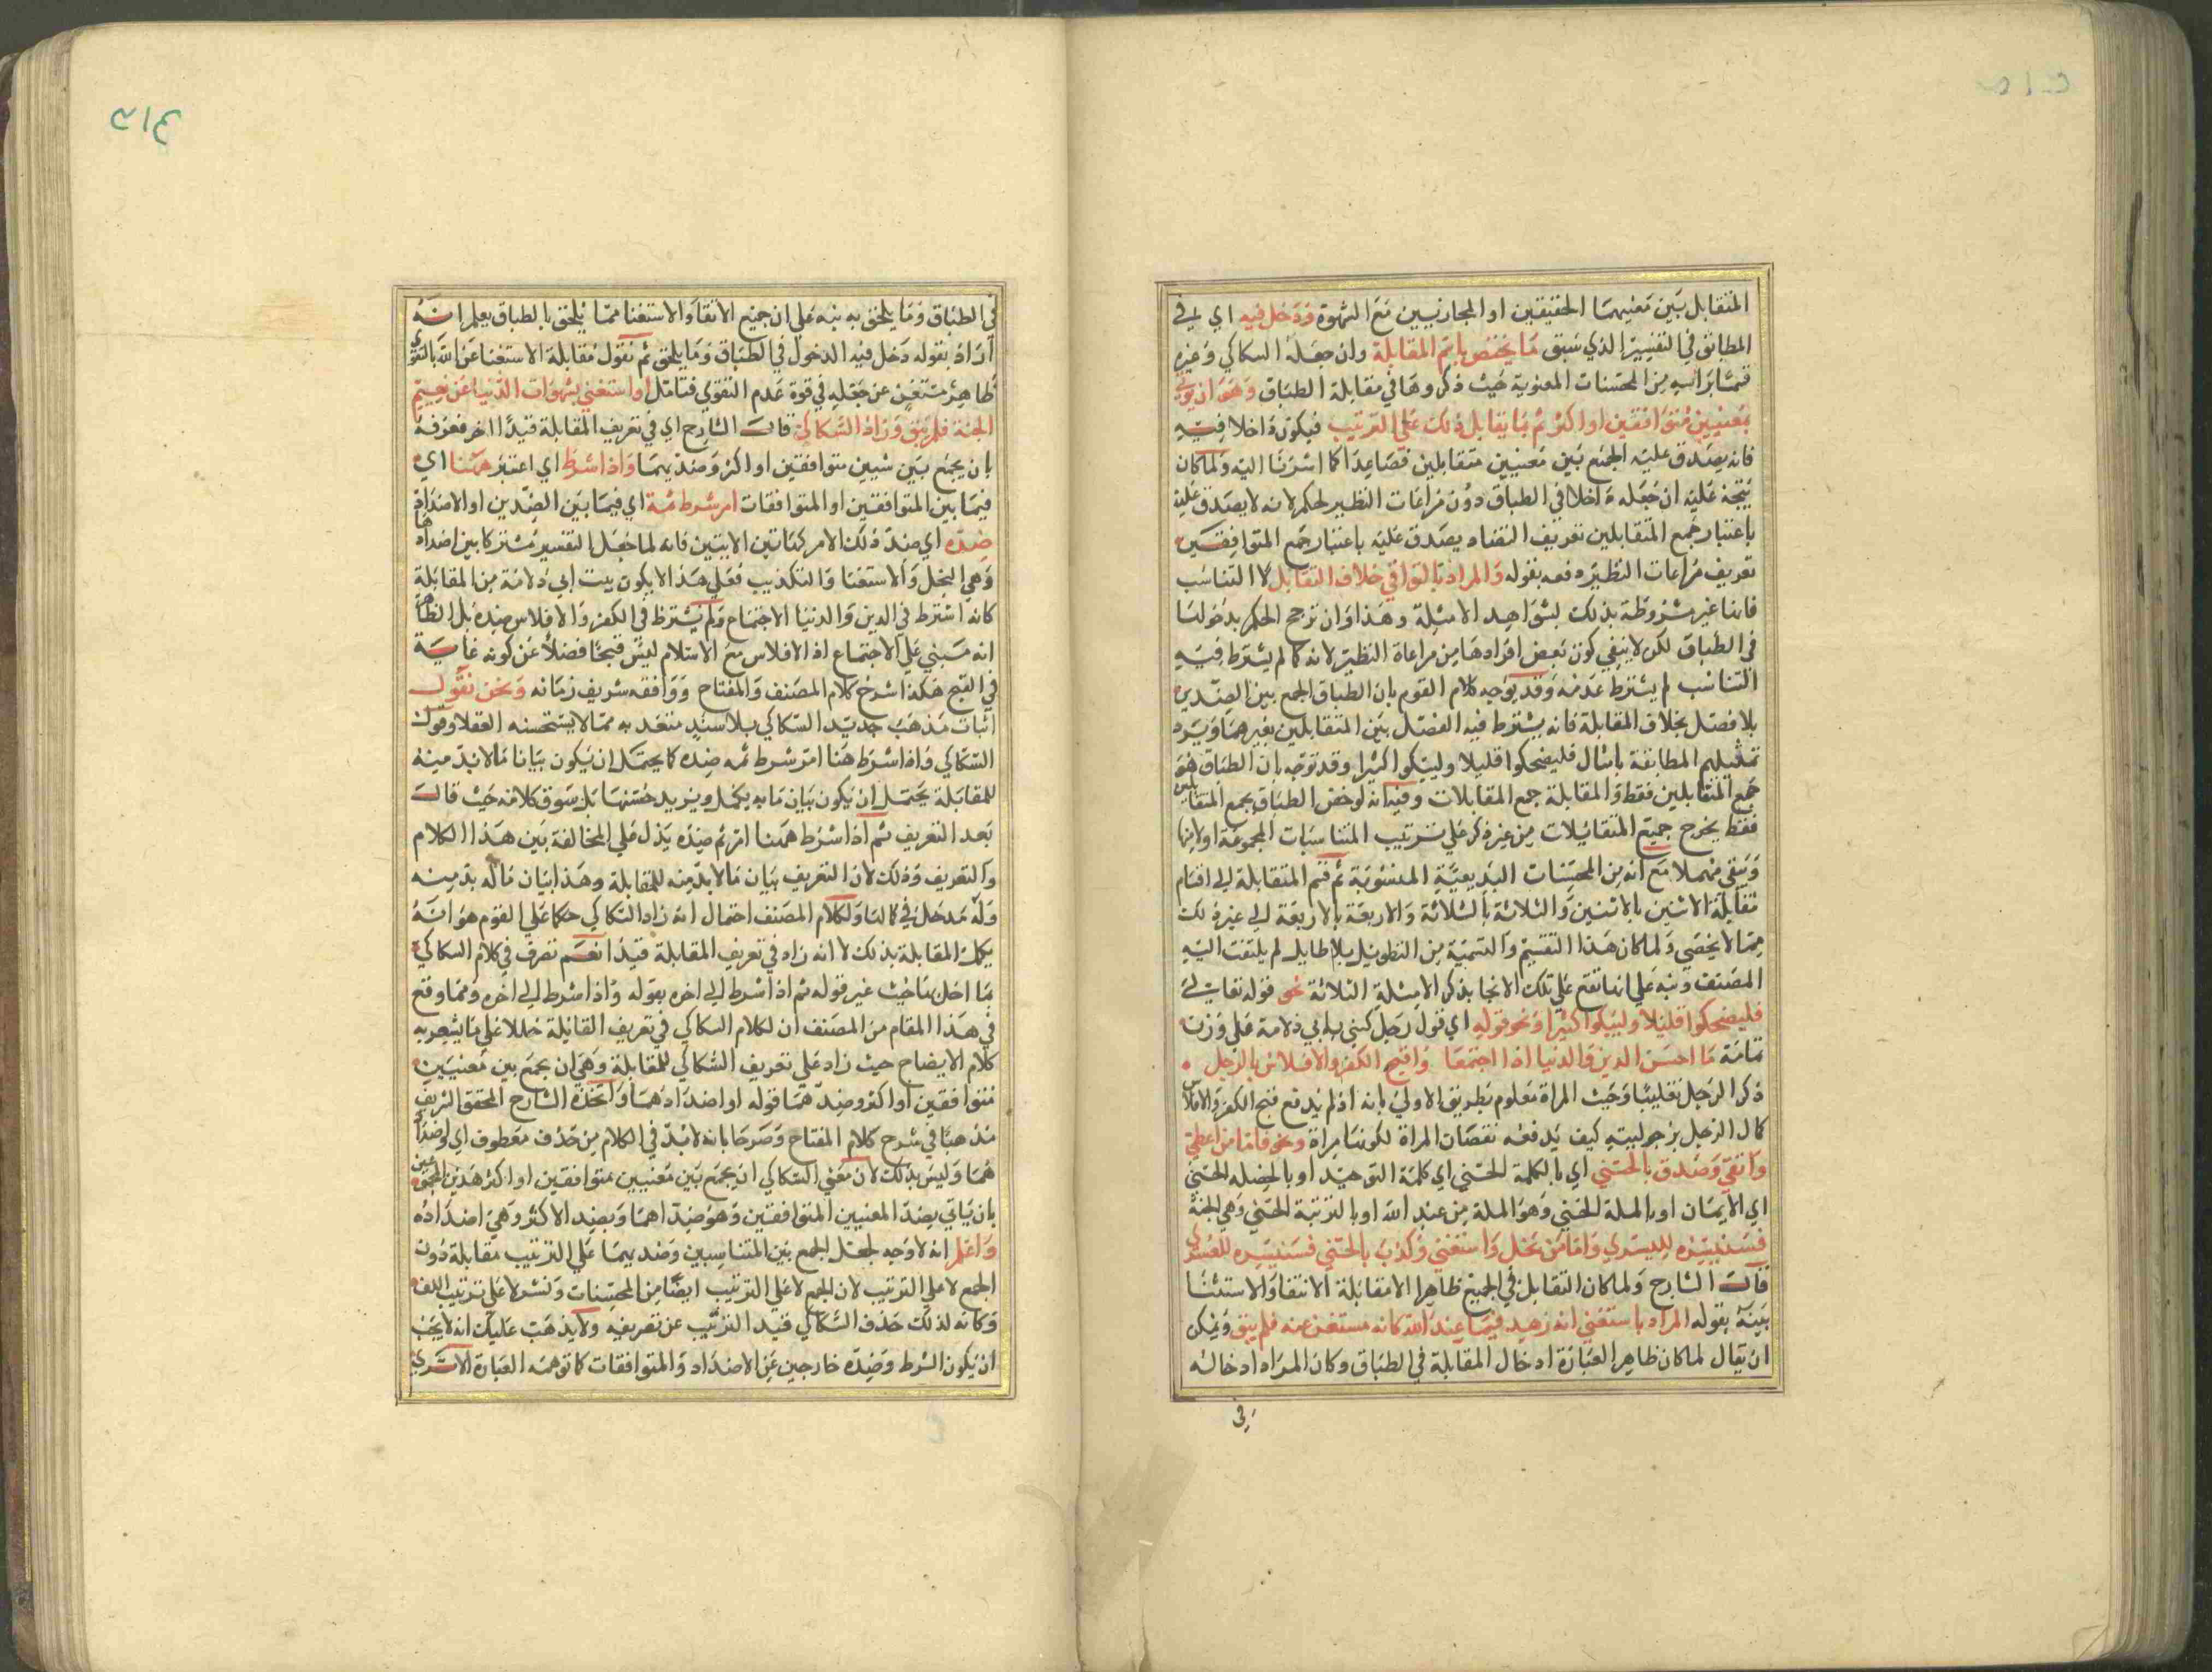 المتقابل بين معنيهما الحقيقين او المجازيين مع الشهوة ودخل فيه اي في
المطابق في التفسير الذي سبق ما يختص باسم المقابلة وان جعله السكاكي وغيره
قسما براسه من المحسنات المعنوية حيث ذكروها في مقابلة الطباق وهو ان يوتي
بمعنيين متوافقين او اكثر ثم بما يقابل ذلك على الترتيب فيكون داخلا فيه
فانه يصدق عليه الجمع بين معنيين متقابلين فصاعدا كما اشرنا اليه ولما كان
يتجه عليه ان جعله داخلا في الطباق دون مراعات النظير لحكم لانه لا يصدق عليه
باعتبار جمع المتقابلين تعريف التضاد يصدق عليه باعتبار جمع المتوافقين
تعريف مراعات النظير دفعه بقوله والمراد بالتوافق خلاف التقابل لا التناسب
فانها غير مشروطة بذلك بشواهد الامثلة وهذا وان ترجح الحكم بدخولها
في الطباق لكن لا ينفي كون بعض افرادها من مراعاة النظير لانه كما لم يشترط فيه
التناسب لم يشترط عدمه وقد يوجه كلام القوم بان الطباق الجمع بين الضدين
بلا فصل بخلاف المقابلة فانه يشترط فيه الفصل بين المتقابلين بغيرهما ويرده
تمثيلهم المطابقة بامثال فليضحكوا قليلا وليبكوا كثيرا وقد توجه بان الطباق هو
جمع المتقابلين فقط والمقابلة جمع المقابلات وفيه انه لو خص الطباق بجمع المتقابلين
فقط يخرج جميع المتقابلات من غير ذكر على ترتيب المتناسبات المجموعة اولا منها
وتبقى مهملا مع انه من المحسنات البديعية المعنوية ثم قسم المتقابلة الى اقسام
مقابلة الاثنين بالاثنين والثلاثة بالثلاثة والاربعة بالاربعة الى غير ذلك
مما لا يحصي ولما كان هذا التقسيم والتسمية من التطويل بلا طايل لم يلتفت اليه
المصنف ونبه على انها تقع على تلك الانحا بذكر الامثلة الثلاثة نحو قوله تعالى
فليضحكوا قليلا وليبكوا كثيرا ونحو قوله اي قول رجل كني بابي دلامة على وزن
ثمامة ما احسن الدين والدنيا اذا اجتمعا واقبح الكفر والافلاس بالرجل
ذكر الرجل تغليبا وحيث المراة معلوم بطريق الاولى بانه اذ لم يدفع قبح الكفر والافلاس
كمال الرجل برجوليته كيف يدفعه نقصان المراة لكونها مراة ونحو فاما من اعطى
واتقى وصدق بالحسنى اي بالكلمة الحسنى اي كلمة التوحيد او بالخصلة الحسنى
اي الايمان او بالملة الحسنى وهو الملة من عند الله او بالترتبة الحسنى وهي الجنة
فسنيسره لليسرى واما من بخل واستغنى وكذب بالحسنى فسنيسره للعسرى
قال الشارح ولما كان التقابل في الجميع ظاهرا الا مقابلة الاتقا والاستغنا
بينه بقوله المراد باستغنى انه زهد فيما عند الله كانه مستغن عنه فلم يتق ويمكن
ان يقال لما كان ظاهر العبارة ادخال المقابلة في الطباق وكان المراد ادخاله
في
في الطباق وما يلحق به نبه على ان جميع الاتقا والاستغنا مما يلحق بالطباق يعلم انه
اراد بقوله دخل فيه الدخول في الطباق وما يلحق ثم نقول مقابلة الاستغنا عن الله بالتقوى
ظاهر مستغن عن جعله في قوة عدم التقوى فتامل او استغنى بشهوات الدنيا عن نعيم
الجنة فلم يتق وزاد السكاكي قال الشارح اي في تعريف المقابلة قيدا اخر فعرفه
بان يجمع بين شيين متوافقين او اكثر وضديهما واذا شرط اي اعتبر ههنا اي
فيما بين المتوافقين او المتوافقات امر شرط ثمة اي فيما بين الضدين او الاضداد
ضده اي ضد ذلك الامر كهاتين الايتين فانه لما جعل التيسير مشتركا بين اضدادها
وهي البخل والاستغنا والتكذيب فعلى هذا لا يكون بيت ابي دلامة من المقابلة
كانه اشترط في الدين والدنيا الاجتماع ولم يشترط في الكفر والافلاس ضده بل الظاهر
انه مبني على الاجتماع اذ الافلاس مع الاسلام ليس قبيحا فضلا عن كونه غاية
في القبح هكذا شرح كلام المصنف والمفتاح ووافقه شريف زمانه ونحن نقول
اثبات مذهب جديد السكاكي بلا سند منعقد به مما لا يستحسنه العقلا وقول
السكاكي واذا شرط هنا امر شرط ثمه ضده كما يحتمل ان يكون بيانا ما لا بد منه
للمقابلة يحتمل ان يكون بيان ما به يكمل ويزيد حسنها بل سوق كلامه حيث قال
بعد التعريف ثم اذا شرط ههنا امر ثم ضده يدل على المخالفة بين هذا الكلام
والتعريف وذلك لان التعريف بيان ما لا بد منه للمقابلة وهذا بيان ماله بد منه
وله مدخل في كمالها ولكلام المصنف احتمال انه زاد السكاكي حكما على القوم هو انه
يكمل المقابلة بذلك لا انه زاد في تعريف المقابلة قيدا نعم تصرف في كلام السكاكي
بما اخل بنا حيث غير قوله ثم اذا شرط الى اخره بقوله واذا شرط الى اخره ومما وقع
في هذا المقام من المصنف ان لكلام السكاكي في تعريف القابلة خللا على ما يشعر به
كلام الايضاح حيث زاد على تعريف السكاكي للمقابلة وهي ان يجمع بين معنيين
متوافقين او اكثر وضديهما قوله او اضدادهما واتخذه الشارح المحقق الشريف
مذهبا في شرح كلام المفتاح وصرحا بانه لا بد في الكلام من حذف معطوف اي او اضداد
هما وليس بذلك لان معنى السكاكي ان يجمع بين معنيين متوافقين او اكثر هذين المجموعين
بان ياتي بضد المعنيين المتوافقين وهو ضداهما وبضد الاكثر وهي اضداده
واعلم انه لا وجه لجعل الجمع بين المتناسبين وضديهما على الترتيب مقابلة دون
الجمع لا على الترتيب لان الجمع لا على الترتيب ايضا من المحسنات ونشر لا على ترتيب اللف
وكانه لذلك حذف السكاكي قيد الترتيب عن تعريفه ولا يذهب عليك انه لا يجب
ان يكون الشرط وضده خارجين عن الاضداد والمتوافقات كما توهمه العبارة الا ترى